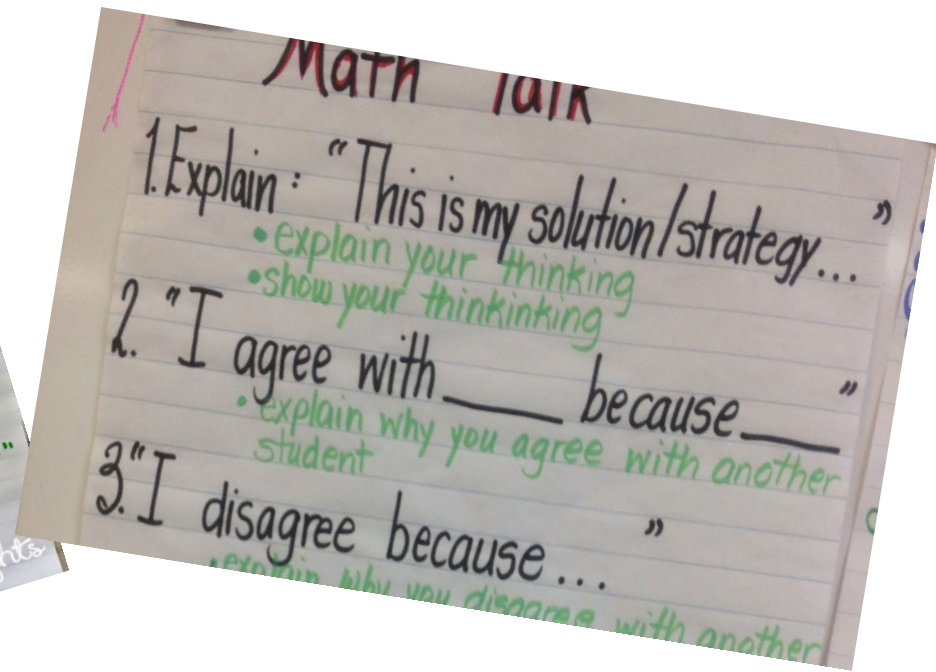 Math Talk
1. Explain: "This is my solution/strategy..."
• explain your thinking
• show your thinkinking
2. "I agree with ____ because ____"
• explain why you agree with another
student
3. "I disagree because..."
• explain why you disagree with another